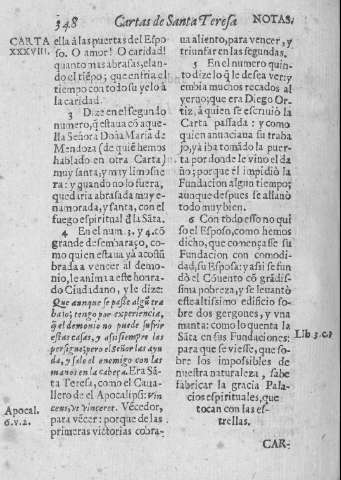 348 Cartas de Santa Teresa NOTAS.
CARTA
XXXVIII.
ella à las puertas del Espo-
so. O amor! O caridad!
quanto mas abrasas, elan-
do el tiẽpo; que enfria el
tiempo con todo su yelo à
la caridad.
3 Dize en el segundo
numero, q̃ estaua cõ aque-
lla Señora Doña Maria de
Mendoza (de quiẽ hemos
hablado en otra Carta)
muy santa, y muy limosne-
ra: y quando no lo fuera,
quedaria abrasada muy e-
namorada, y santa, con el
fuego espiritual d̃ la Sãta.
4 En el num. 3. y 4. cõ
grande desembarazo, co-
mo quien estaua yà acostũ
brada a vencer al demo-
nio, le anima a este honra-
do Ciudadano, y le dize:
Que aunque se passe algũ tra
bajo; tengo por experiencia,
q̃ el demonio no puede sufrir
estas casas, y assi siempre las
persigue; pero el Señor las ayu
da, y sale el enemigo con las
manos en la cabeça. Era Sã-
ta Teresa, como el Caua-
llero de el Apocalipsi: Vin
cens, vt vinceret. Vẽcedor,
para vẽcer: porque de las
primeras victorias cobra-
Apocal.
6. v. 2.
ua aliento, para vencer, y
triunfar en las segundas.
5 En el numero quin-
to dize lo q̃ le desea ver; y
embia muchos recados al
yerno; que era Diego Or-
tiz, à quien se escriuiò la
Carta passada: y como
quien anunciaua su traba
jo, ya iba tomãdo la puer-
ta por donde le vino el da
ño; porque èl impidiò la
Fundacion algun tiempo;
aunque despues se allanò
todo muy bien.
6 Con todo esso no qui
so el Esposo, como hemos
dicho, que començasse su
Fundacion con comodi-
dad, su Esposa: y assi se fun
dò el Cõuento cõ grãdissi-
ma pobreza, y se leuantò
este altissimo edificio so-
bre dos gergones, y vna
manta: como lo quenta la
Sãta en sus Fundaciones:
para que se viesse, que so-
bre los impossibles de
nuestra naturaleza, sabe
fabricar la gracia Pala-
cios espirituales, que
tocan con las es-
trellas.
Lib. 3. c. 8
CAR-